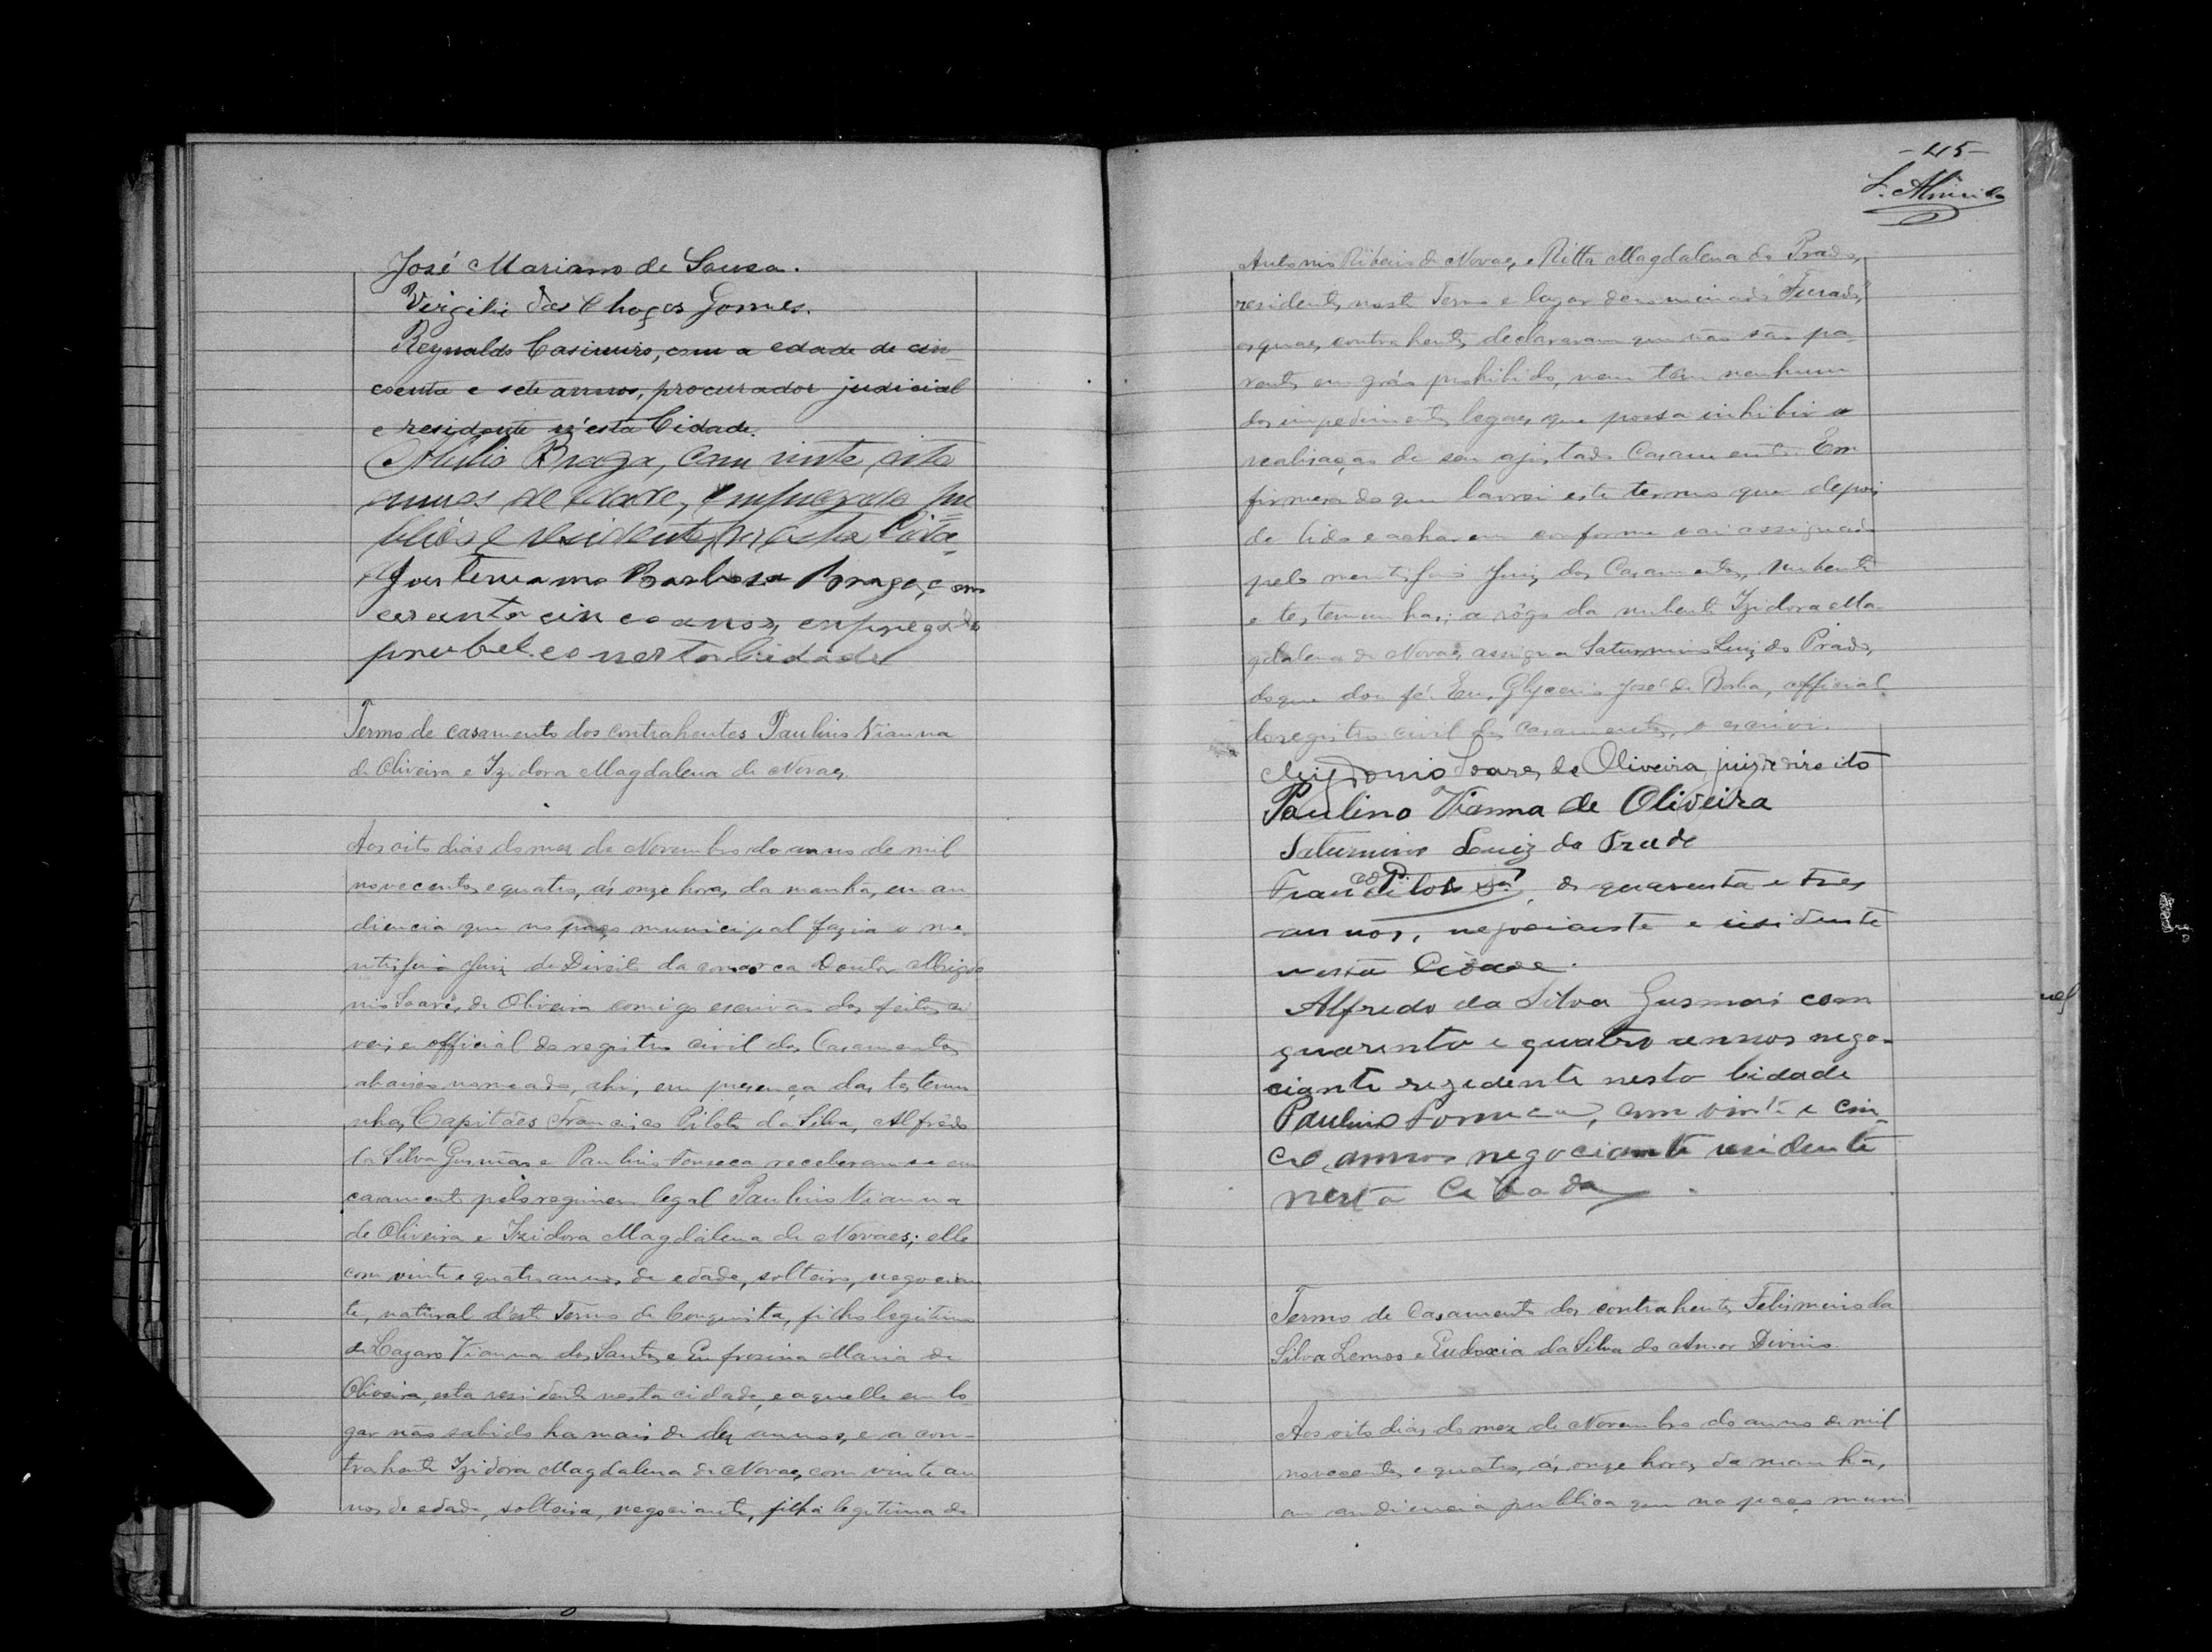 José Mariano de Sousa.
Virgilio das Chagas Gomes.
Reynaldo Casimiro, com a edade de cin-
coenta e sete annos, procurador judicial
e residente n'esta Cidade.
Braga, com vinte oito
annos de idade, empregado pu
blico e residente n'esta Cida-
Justiniano Barbosa Braga, com
coenta cinco anos, empregado
publico nesta cidade
Termo de casamento dos contrahentes Paulino Vianna
de Oliveira e Izidora Magdalena de Novaes.
Aos oito dias do mez de Novembro do anno de mil
novecentos e quatro, ás onze horas da manhã, em au
diencia que no paço municipal fazia o me-
ritissimo Juiz de Direito da comarca Doutor Migdo
nio Soares de Oliveira comigo escrivão dos feitos ci
veis e official do registro civil dos Casamentos
abaixo nomeado, ahi, em presença das testemu
nhas Capitães Francisco Pilota da Silva, Alfredo
da Silva Gusmão e Paulino Fonseca receberam-se em
casamento pelo regimen legal Paulino Vianna
de Oliveira e Izidora Magdalena de Novaes; elle
com vinte e quatro annos de edade, solteiro, negocian
te, natural d'este Termo de Conquista, filho legitimo
de Lazaro Vianna dos Santos e Eufrosina Maria de
Oliveira, esta residente nesta cidade, e aquelle em lo-
gar não sabido ha mais de dez annos, e a con-
trahente Izidora Magdalena de Novaes, com vinte an
nos de edade, solteira, negociante, filha legitima de
-45-
F. Almeida
Antonio Ribeiro de Novaes e Ritta Magdalena do Prado,
residentes neste Termo e lugar denominado "Furado",
os quaes contrahentes declararam que não são pa-
rentes em gráo prohibido, nem tem nenhum
dos impedimentos legaes que possa inhibir a
realisação de seu ajustado Casamento. Em
firmeza do que lavrei este termo que depois
de lido e acharem conforme vai assignado
pelo meritissimo Juiz dos Casamentos, nubente
e testemunhas; a rôgo da nubente Izidora Ma-
gdalena de Novaes, assigna Saturnino Luiz do Prado,
do que dou fé. Eu, Glycerio José de Borba, official
do registro civil dos casamentos, o escrevi.
Migdonio Soares de Oliveira, juiz de direito
Paulino Vianna de Oliveira
Saturnino Luiz do Prado
Franco Pilota Sa, de quarenta e tres
annos, negociante e residente
nesta Cidade.
Alfredo da Silva Gusmão com
quarenta e quatro annos nego-
ciante rezedente nesta Cidade
Paulino Fonseca, com vinte e cin-
co, annos negociante residente
nesta Cidade.
Termo de Casamento dos contrahentes Felismino da
Silva Lemos e Eudoxia da Silva do Amor Divino.
Aos oito dias do mez de Novembro do anno de mil
novecentos e quatro, ás onze horas da manhã,
em audiencia publica que no paço muni-